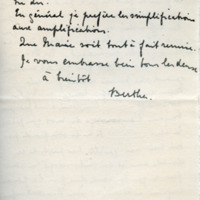 du dir.
En général je préfère les simplifications
aux amplifications.
Que Marie soit tout à fait remise.
Je vous embrasse bien tous les deux
à bientôt
Berthe.